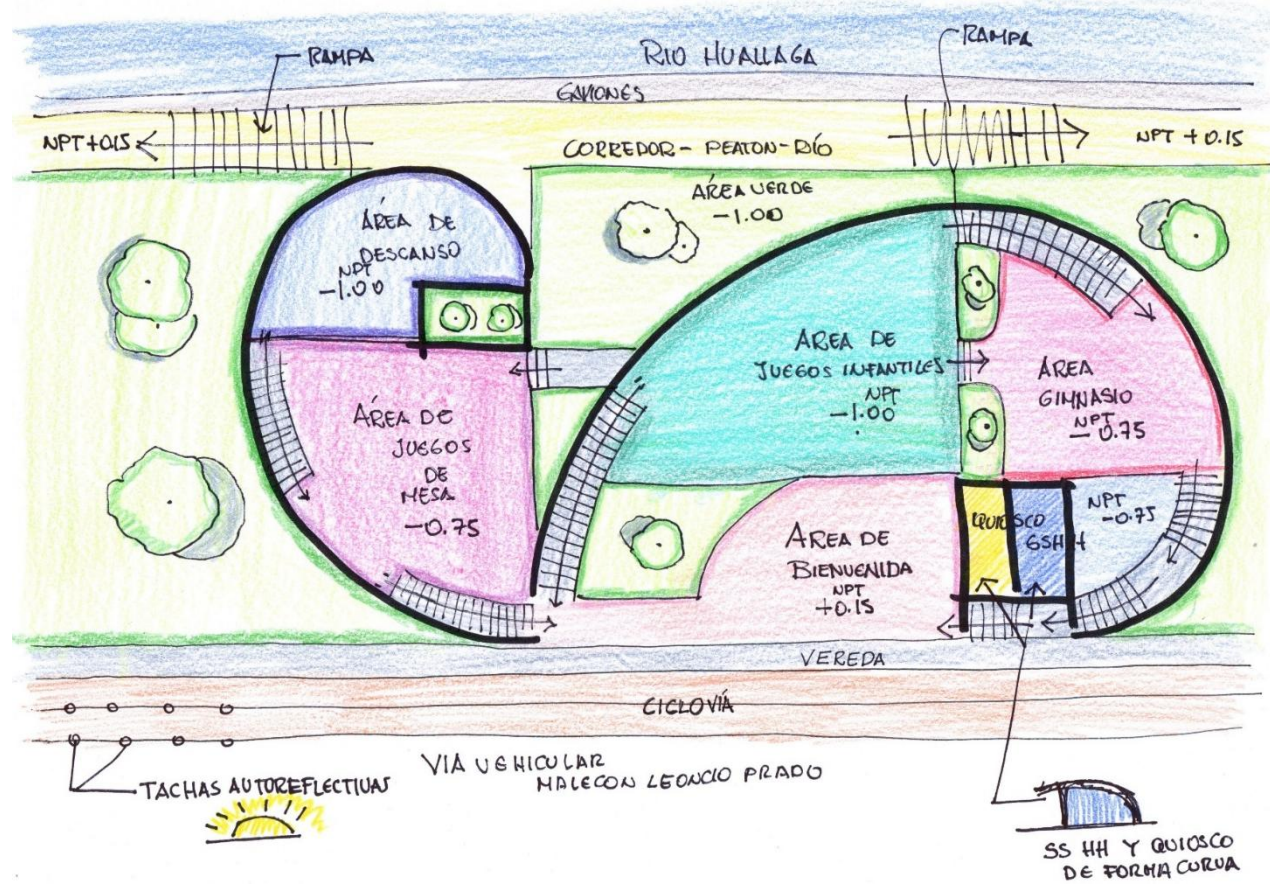 RAMPA
RIO HUALLAGA
RAMPA
GAVIONES
NPT+0.15
CORREDOR-PEATON-RÍO
NPT + 0.15
ÁREA VERDE
-1.00
ÁREA DE
DESCANSO
NPT
-1.00
ÁREA DE
JUEGOS INFANTILES
NPT
-1.00
ÁREA
GIMNASIO
NPT
-0.75
ÁREA DE
JUEGOS
DE
MESA
-0.75
NPT
-0.75
QUIOSCO
AREA DE
BIENVENIDA
NPT
+0.15
VEREDA
CICLOVÍA
VIA VEHICULAR
MALECON LEONCIO PRADO
TACHAS AUTOREFLECTIVAS
SS HH Y QUIOSCO
DE FORMA CURVA